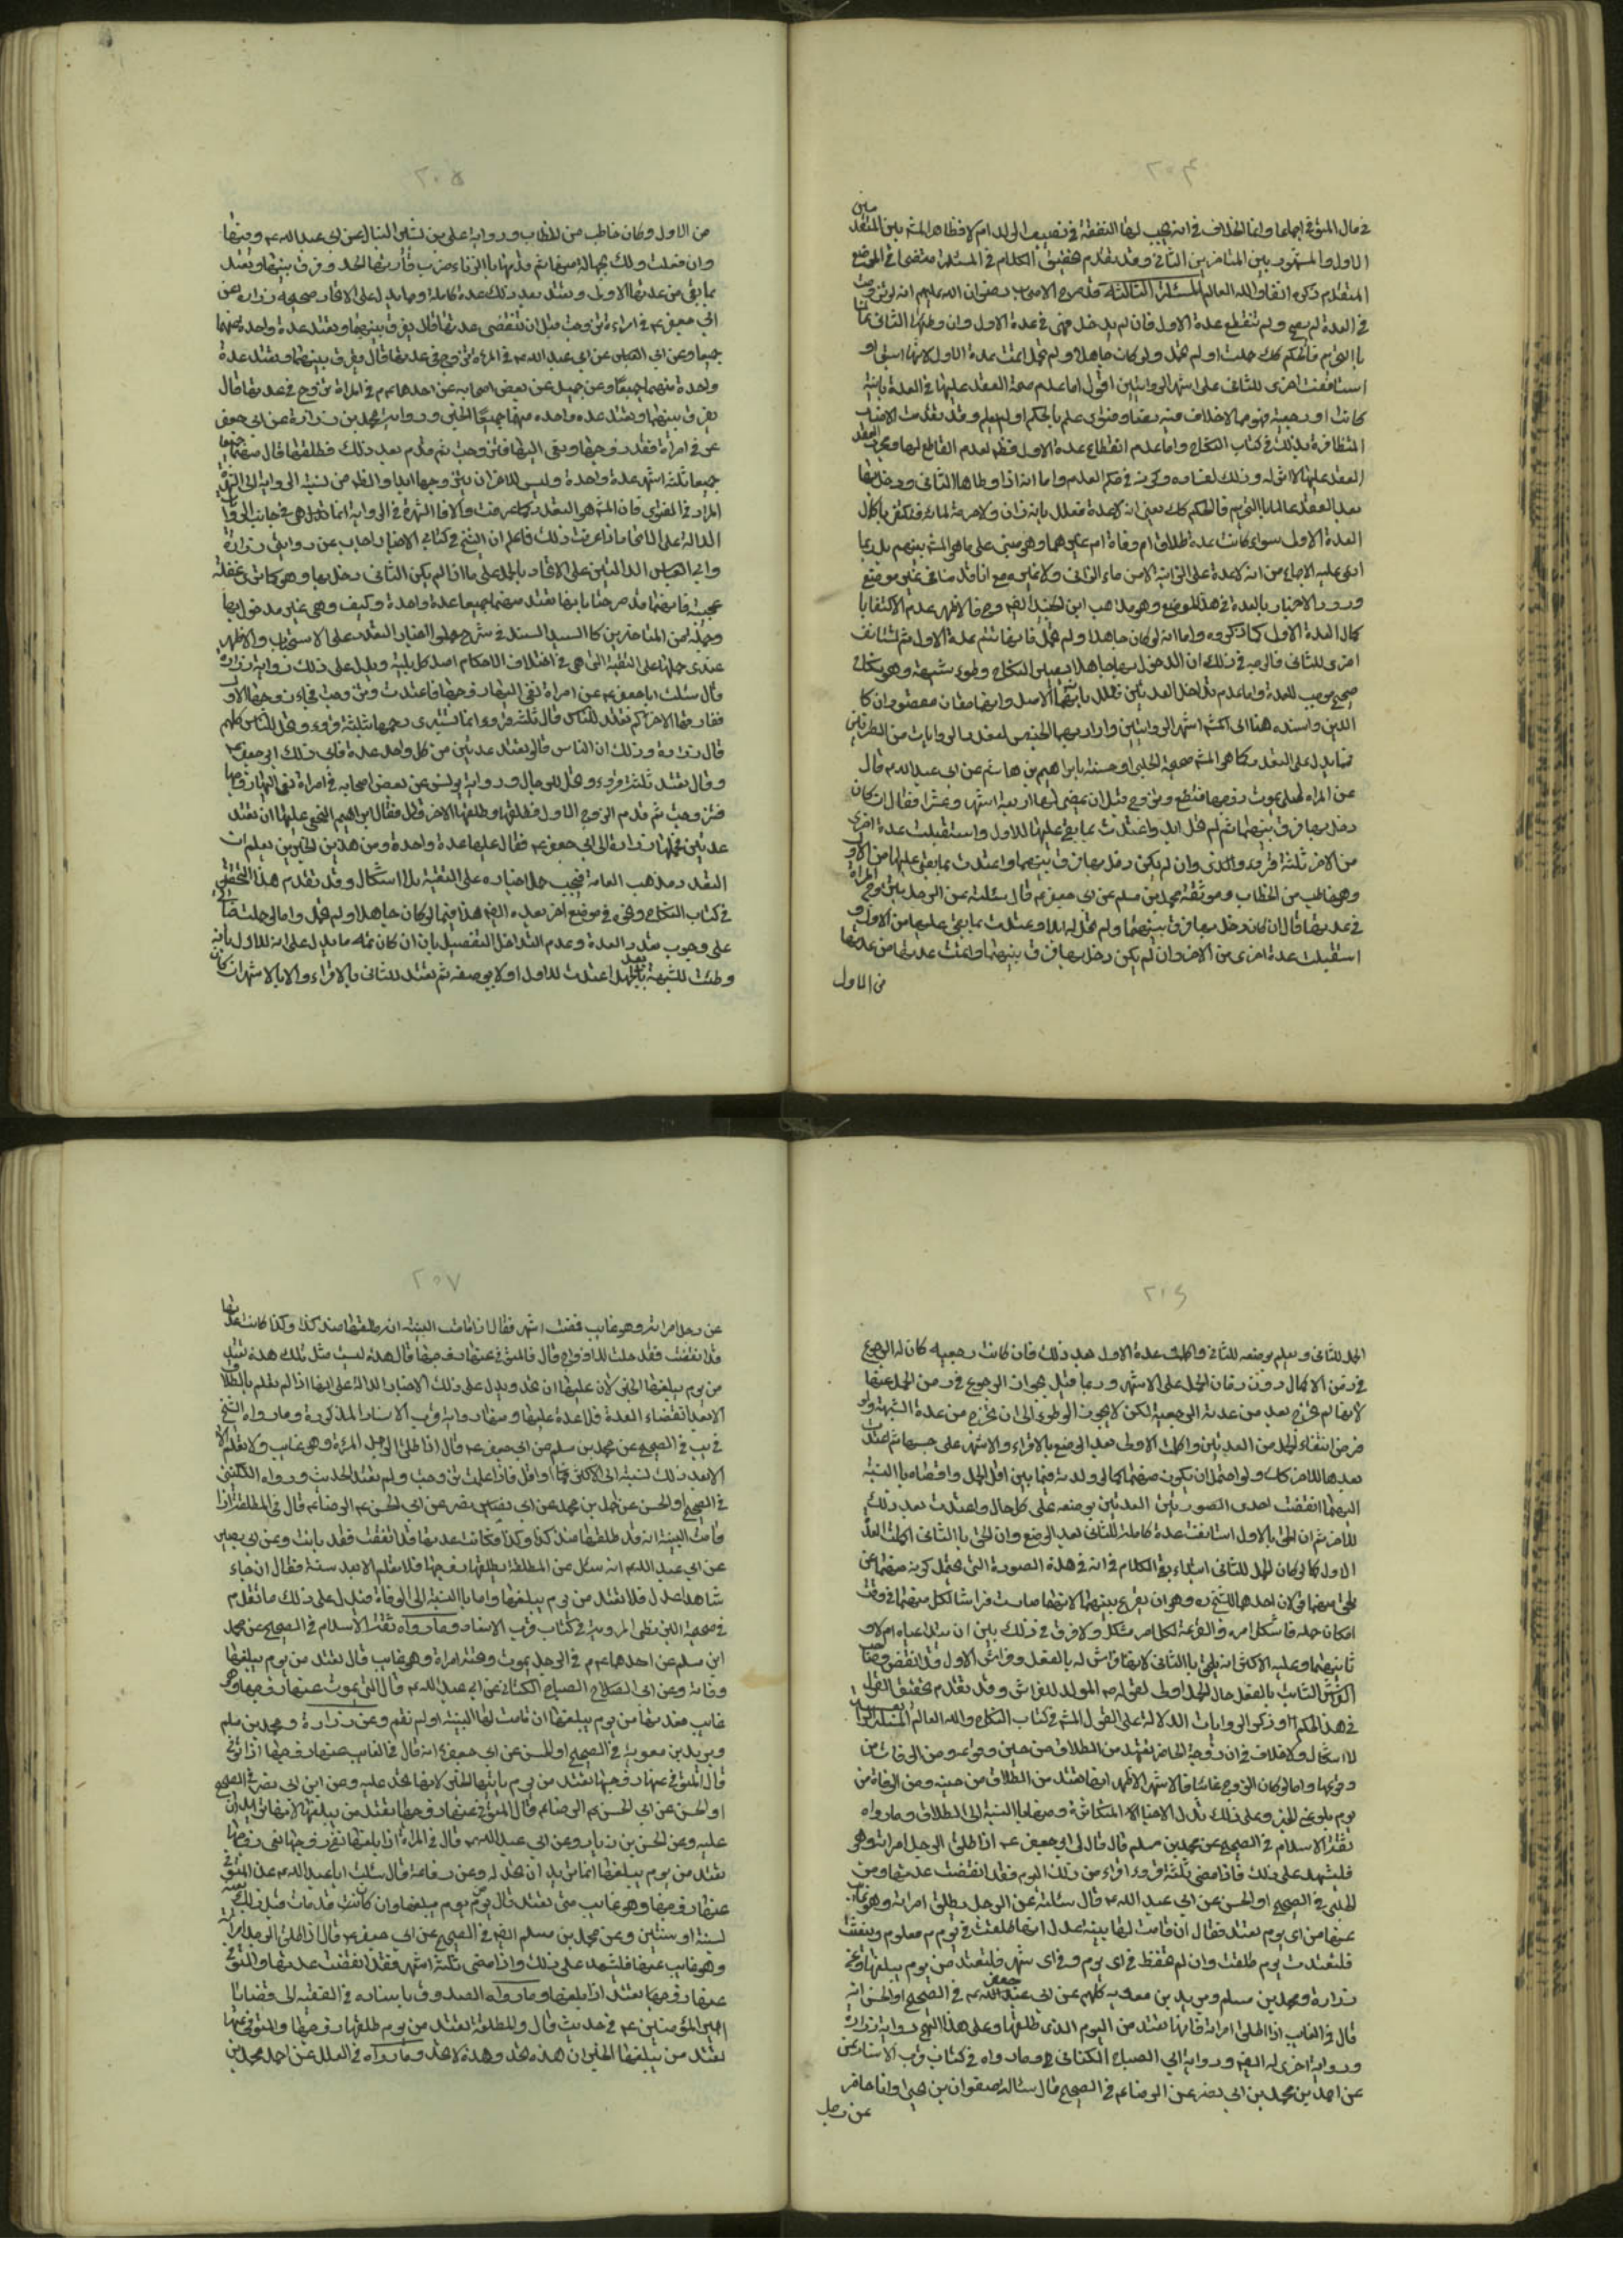 ٢٠٤
الاول والمشهور بين المتاخرين الثاني وقد تقدم تحقيق الكلام في المسئلة مفصلا في الموضع
المتقدم ذكره انفا والله العالم المسئلة الثالثة قد صرح الاصحاب رضوان الله عليهم انه لو تزوجت
في العدة لم يصح ولم تنقطع عدة الاول فان لم يدخل فهي في عدة الاول وان وطئها الثاني عالما
بالتحريم فالحكم كك حملت او لم تحمل ولو كان جاهلا ولم تحمل اتمت عدة الاول لانها اسبق و
استانفت اخرى للثاني على اشهر الروايتين اقول اما عدم صحة العقد عليها في العدة باينة
كانت او رجعية فهو مما لاخلاف فيه نصا وفتوى علم بالحكم او لم يعلم وقد تقدمت الاخبار
المتظافرة بذلك في كتاب النكاح واما عدم انقطاع عدة الاول فظ لعدم القاطع لها ومجرد العقد
العقد عليها لا اثر له وذلك لفساده وكونه في حكم العدم واما انه اذا وطاها الثاني ودخل بها
بعد العقد عالما بالتحريم فالحكم كك يعني انه لا عدة فعلل بانه زان ولا حرمة لمائه فتكتفي باكمال
العدة الاول سواء كانت عدة طلاق ام وفاة ام غيرهما وهو مبني على ما هو المش بينهم بل ربما
ادعي عليه الاجماع من انه لا عدة على الزانية لا من ماء الزاني ولا غيره مع انا قدمنا في غير موضع
ورود الاخبار بالعدة في هذا الموضع وهو مذهب ابن الجنيد ايضا وح فالاظهر عدم الاكتفا با
كمال العدة الاول كما ذكروه واما انه لو كان جاهلا ولم تحمل فانها تتم عدة الاول ثم تستانف
اخرى للثاني فالوجه في ذلك ان الدخول بها جاهلا يصير النكاح وطوء شبهة وهو نكاح
صحيح موجب للعدة واما عدم تداخل العدتين فعلل بانه الاصل وانهما حقان مقصودان كا
الدين واسنده هنا الى اشهر الروايتين واراد بهما الجنس لتعدد الروايات من الطرفين
فما يدل على التعدد كما هو المش صحيحة الحلبي او حسنته بابراهيم بن هاشم عن ابي عبد الله ع قال
عن المراة الحبلى يموت زوجها فتضع وتزوج قبل ان يمضي لها اربعة اشهر وعشرا فقال ان كان
دخل بها فرق بينهما ثم لم تحل له ابدا واعتدت بما بقي عليها للاول واستقبلت عدة اخرى
من الاخر ثلثة قروء والذي وان لم يكن دخل بها فرق بينهما واعتدت بما بقي عليها من الاول
وهو خاطب من الخطاب وموثقة محمد بن مسلم عن ابي جعفر ع قال سئلته عن الرجل يتزوج المراة
في عدتها قال ان كان دخل بها فرق بينهما ولم تحل له ابدا واعتدت بما بقي عليها من الاول و
استقبلت عدة اخرى من الاخر وان لم يكن دخل بها فرق بينهما واتمت عدتها من عدتها
من الاول
٢٠٥
من الاول وكان خاطب من الخطاب ورواية علي بن بشير النبال عن ابي عبد الله ع وفيها
وان فعلت ذلك بجهالة منها ثم قذفها بالزناء ضرب قاذفها الحد وفرق بينهما وتعتد
بما بقي من عدتها الاولى وتعتد بعد ذلك عدة كاملة ومما يدل على الاتحاد صحيحه زرارة عن
ابي جعفر ع في امراءة تزوجت قبل ان تنقضي عدتها قال يفرق بينهما وتعتد عدة واحدة منهما
جميعا وعن ابي العباس عن ابي عبد الله ع في المرءة تزوج في عدتها قال يفرق بينهما وتعتد عدة
واحدة منهما جميعا وعن جميل عن بعض اصحابه عن احدهما ع م في المراة تزوج في عدتها قال
يفرق بينهما وتعتد عده واحده منهما جميعا الخبر ورواية محمد بن زرارة عن ابي جعفر
ع في امراة فقد زوجها ونعي اليها فتزوجت ثم قدم بعد ذلك فطلقها قال تعتد منهما
جميعا ثلثة اشهر عدة واحدة وليس للاخر ان يتزوجها ابدا
الدالة على الاتحاد اذا عرفت ذلك فاعلم ان الشيخ في كتابي الاخبار اجاب عن روايتي زرارة
وابي العباس الدالتين على الاتحاد بالحمل على ما اذا لم يكن الثاني دخل بها وهو كما ترى غفلة
عجيبة فانهما قد صرحتا بانها تعتد منهما جميعا عدة واحدة وكيف وهي غير مدخول بها
وجملة من المتاخرين كالسيد السند في شرح حملوا اخبار التعدد على الاستحباب والاظهر
عندي حملها على التقية التي هي في اختلاف الاحكام اصل كل بلية ويدل على ذلك رواية زرارة
قال سئلت ابا جعفر ع عن امراة نعي اليها زوجها فاعتدت وتزوجت فجاء زوجها الاول
ففارقها الاخر كم تعتد للناس قال ثلثة قروء وانما يستبرى رحمها بثلثة قروء وتحل للناس كلهم
قال زرارة وذلك ان الناس قالوا تعتد عدتين من كل واحد عدة فابى ذلك ابو جعفر ع
وقال تعتد ثلثة قروء وتحل للرجال ورواية يونس عن بعض اصحابه في امراة نعي اليها زوجها
فتزوجت ثم قدم الزوج الاول فطلقها وطلقها الاخر قال فقال ابراهيم النخعي عليها ان تعتد
عدتين فحملها زرارة الى ابي جعفر ع فقال عليها عدة واحدة ومن هذين الخبرين يعلم ان
التعدد مذهب العامة فيجب حمل اخباره على التقية بلا اشكال وقد تقدم هذا التحقيق
في كتاب النكاح وفي موضع اخر بعده ايضا هذا فيما لو كان جاهلا ولم تحمل واما لو حملت
على وجوب تعدد العدة وعدم التداخل التفصيل بانه ان كان ثمه ما يدل على انه للاول بانه
وطئت للشبهة بعد الحمل اعتدت للاول اولا بوضعه ثم تعتد للثاني بالاقراء والا بالاشهر وان كان
٢٠٦
الحمل للثاني ويعلم بوضعه للثاني واكملت عدة الاول بعد ذلك فان كانت رجعيه كان له الرجوع
في زمن الاكمال دون زمان الحمل على الاشهر وربما قيل بجواز الرجوع في زمن الحمل ايضا
لانها لم تخرج بعد من عدته الرجعية لكن لا يجوز الوطوء الى ان تخرج من عدة الشبهة ولو
فرض انتفاء الحمل من العدتين واكملت الاولى بعد الوضع بالاقراء والاشهر على حسبها ثم اعتدت
بعدها للاخر كك ولو احتمل ان يكون منهما كما لو ولدته فيما بين اقل الحمل واقصاه بالنسبة
اليهما انقضت احدى الصورتين العدتين بوضعه على كل حال واعتدت بعد ذلك
للاخر ثم ان لحق بالاول استانفت عدة كاملة للثاني بعد الوضع وان لحق بالثاني اكملت العدة
الاول كما لو كان الحمل للثاني ابتداء بقي الكلام في انه في هذه الصورة التي يحتمل كونه منهما عن
يلحق منهما قولان احدهما للشيخ ره وهو ان يقرع بينهما لانها صارت فراشا لكل منهما في وقت
امكان حمله فاشكل امره والقرعة لكل امر مشكل ولا فرق في ذلك بين ان يتداعياه ام لا و
ثانيهما وعليه الاكثر انه يلحق بالثاني لانها فراش له بالفعل وفراش الاول قد انقضى وصاحب
الفراش الثابت بالفعل حال الحمل اولى لقوله ص الولد للفراش وقد تقدم تحقيق القول
في هذا الحكم وذكر الروايات الدالة على القول المش في كتاب النكاح والله العالم المسئلة الرابعة
لا اشكال ولاخلاف في ان زوجة الحاضر تعتد من الطلاق من حين وقوعه ومن الوفات من
وقوعها واما لو كان الزوج غائبا فالاشهر الاظهر انها تعتد من الطلاق من حينه ومن الوفاة من
يوم بلوغ الخبر وعلى ذلك تدل الاخبار المتكاثرة ومنها بالنسبة الى الطلاق ما رواه
ثقة الاسلام في الصحيح عن محمد بن مسلم قال قال لي ابو جعفر ع اذا طلق الرجل امراته وهو
فليشهد على ذلك فاذا مضى ثلثة قروء اقراء من ذلك اليوم فقد انقضت عدتها وعن
الحلبي في الصحيح او الحسن عن ابي عبد الله ع قال سئلته عن الرجل يطلق امراته وهو غايب
عنها من اى يوم تعتد فقال ان قامت لها بينة عدل انها طلقت في يوم معلوم وتيقنت
فلتعتد من يوم طلقت وان لم تحفظ في اى يوم وفي اى شهر فلتعتد من يوم يبلغها وعن
زرارة ومحمد بن مسلم وبريد بن معوية كلهم عن ابي جعفر ع في الصحيح او الحسن انه
قال في الغايب اذا طلق امراته فانها تعتد من اليوم الذي طلقها وعلى هذا النهج رواية زرارة
ورواية اخرى له ايضا ورواية ابي الصباح الكناني وما رواه في كتاب قرب الاسناد عن
عن احمد بن محمد بن ابي نصر عن الرضا ع في الصحيح قال سئاله صفوان بن يحيى وانا حاضر
عن رجل
٢٠٧
عن رجل طلق امراته وهو غايب فمضت اشهر فقال اذا قامت البينة انه طلقها منذ كذا وكذا كانت عدتها
قد انقضت فقد حلت للازواج قال فالمتوفى عنها زوجها قال هذه ليست مثل تلك هذه تعتد
من يوم يبلغها الخبر لان عليها ان تحد ويدل على ذلك الاخبار الدالة على انها اذا لم تعلم بالطلاق
الا بعد انقضاء العدة فلا عدة عليها ومنها رواية قرب الاسناد المذكورة وما رواه الشيخ
في يب في الصحيح عن محمد بن مسلم عن ابي جعفر ع قال اذا طلق الرجل المرءة وهو غايب ولا تعلم الا
الا بعد ذلك بسنة او اكثر او اقل فاذا علمت تزوجت ولم تعتد الحديث ورواه الكليني
في الصحيح او الحسن عن احمد بن محمد عن ابي نصر عن ابي الحسن الرضا ع قال في المطلقة اذا
قامت البينة انه قد طلقها منذ كذا وكذا فكانت عدتها قد انقضت فقد بانت وعن ابي بصير
عن ابي عبد الله ع انه سئل عن المطلقة يطلقها زوجها فلا تعلم الا بعد سنة فقال ان جاء
شاهدا عدل فلا تعتد والا فلتعتد من يوم يبلغها واما بالنسبة الى الوفاة فيدل على ذلك ما تقدم
في صحيحة البزنطي المروية في كتاب قرب الاسناد وما رواه ثقة الاسلام في الصحيح عن محمد
ابن مسلم عن احدهما ع م في الرجل يموت وتحته امراة وهو غايب قال تعتد من يوم يبلغها
وفاته وعن ابي الصباح الكناني عن ابي عبد الله ع قال التي يموت عنها زوجها وهو
غايب فعدتها من يوم يبلغها ان قامت لها البينة او لم تقم وعن زرارة ومحمد بن مسلم
وبريد بن معوية في الصحيح او الحسن عن ابي جعفر ع انه قال في الغايب عنها زوجها اذا توفي
قال المتوفى عنها زوجها تعتد من يوم ياتيها الخبر لانها تحد عليه وعن ابن ابي نصر في الصحيح
او الحسن عن ابي الحسن الرضا ع قال المتوفى عنها زوجها تعتد من يبلغها لانها تريد ان
عليه وعن الحسن بن زياد وعن ابي عبد الله ع قال في المراة اذا بلغها نعي زوجها
تعتد من يوم يبلغها انما تريد ان تحد له وعن رفاعة قال سئلت ابا عبد الله ع عن المتوفى
عنها زوجها وهو غايب متى تعتد قال يوم يبلغها وان كانت قد مات قبل ذلك
لسنة او سنتين وعن محمد بن مسلم ايضا في الصحيح عن ابي جعفر ع قال اذا طلق الرجل امراته
وهو غايب عنها فليشهد على ذلك واذا مضى ثلثة اشهر فقد انقضت عدتها والمتوفى
عنها زوجها تعتد اذا بلغها وما رواه الصدوق باسناده في الفقيه الى قضايا
امير المؤمنين ع في حديث قال والمطلقة تعتد من يوم طلقها زوجها والمتوفى عنها
تعتد من يبلغها الخبر ان هذه تحد وهذه لا تحد وما رواه في العلل عن احمد بن محمد بن